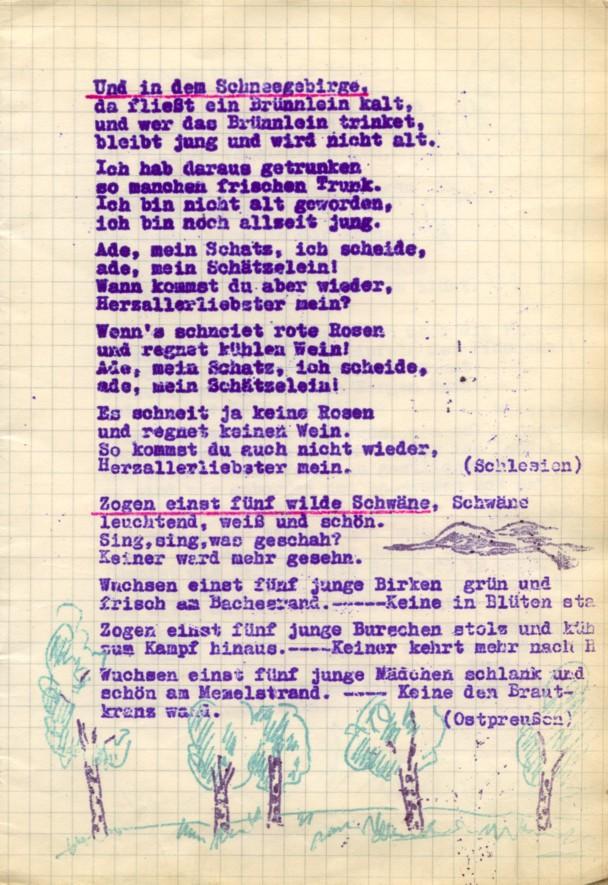 Und in dem Schneegebirge,
da fließt ein Brünnlein kalt,
und wer das Brünnlein trinket,
bleibt jung und wird nicht alt.
Ich hab daraus getrunken
so manchen frischen Trunk.
Ich bin nicht alt geworden,
ich bin noch allzeit jung.
Ade, mein Schatz, ich scheide,
ade, mein Schätzelein!
Wann kommst du aber wieder,
Herzallerliebster mein?
Wenn's schneiet rote Rosen
und regnet kühlen Wein!
Ade, mein Schatz, ich scheide,
ade, mein Schätzelein!
Es schneit ja keine Rosen
und regnet keinen Wein.
So kommst du auch nicht wieder,
Herzallerliebster mein.
(Schlesien)
Zogen einst fünf wilde Schwäne, Schwäne
leuchtend, weiß und schön.
Sing,sing,was geschah?
Keiner ward mehr gesehn.
Wuchsen einst fünf junge Birken grün und
frisch am Bachesrand.-----Keine in Blüten sta
Zogen einst fünf junge Burschen stolz und küh
zum Kampf hinaus.----Keiner kehrt mehr nach H
Wuchsen einst fünf junge Mädchen schlank und
schön am Memelstrand. ---- Keine den Braut-
kranz wand.
(Ostpreußen)